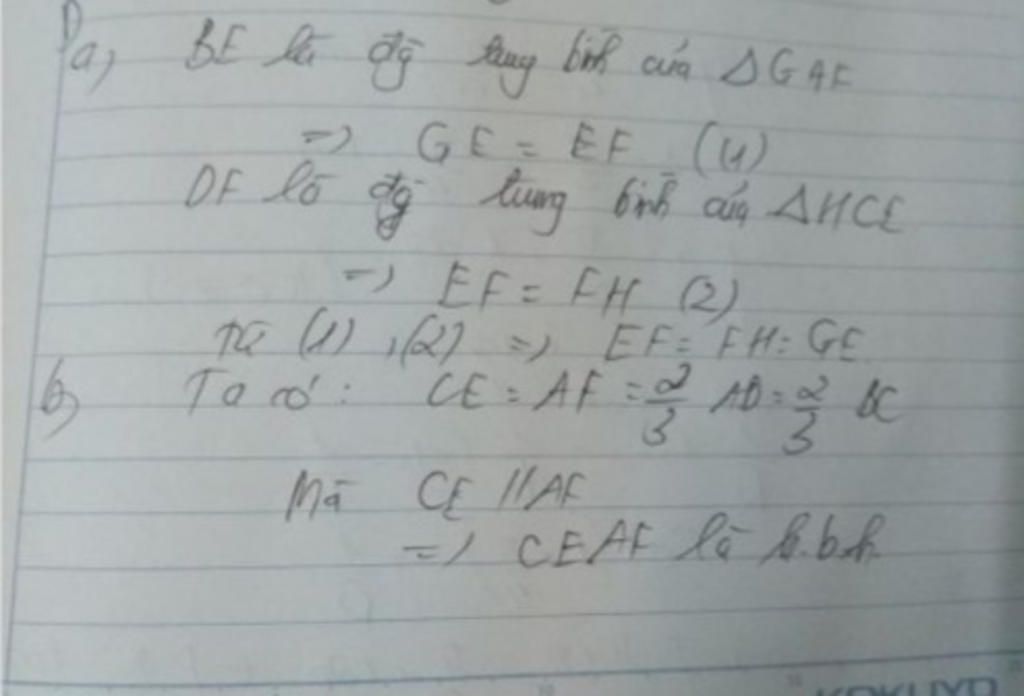 a) BE là đg̃ trung bình của ΔGAF
=> GE = EF (1)
DF là đg̃ trung bình của ΔHCE
=> EF = FH (2)
Từ (1), (2) => EF = FH = GE
b) Ta có: CE = AF = 2/3 AD = 2/3 BC
Mà CE // AF
=> CEAF là h.b.h
KOKUYO